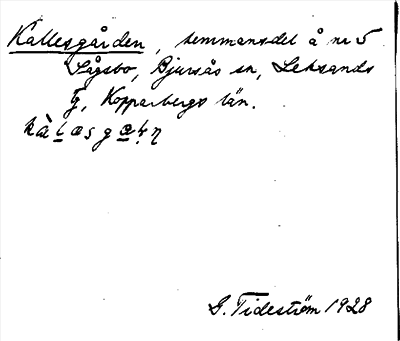 Kallesgården, hemmansdel å nr 5
Sågsbo, Bjursås sn, Leksands
tg, Kopparbergs län.
G. Tideström 1928